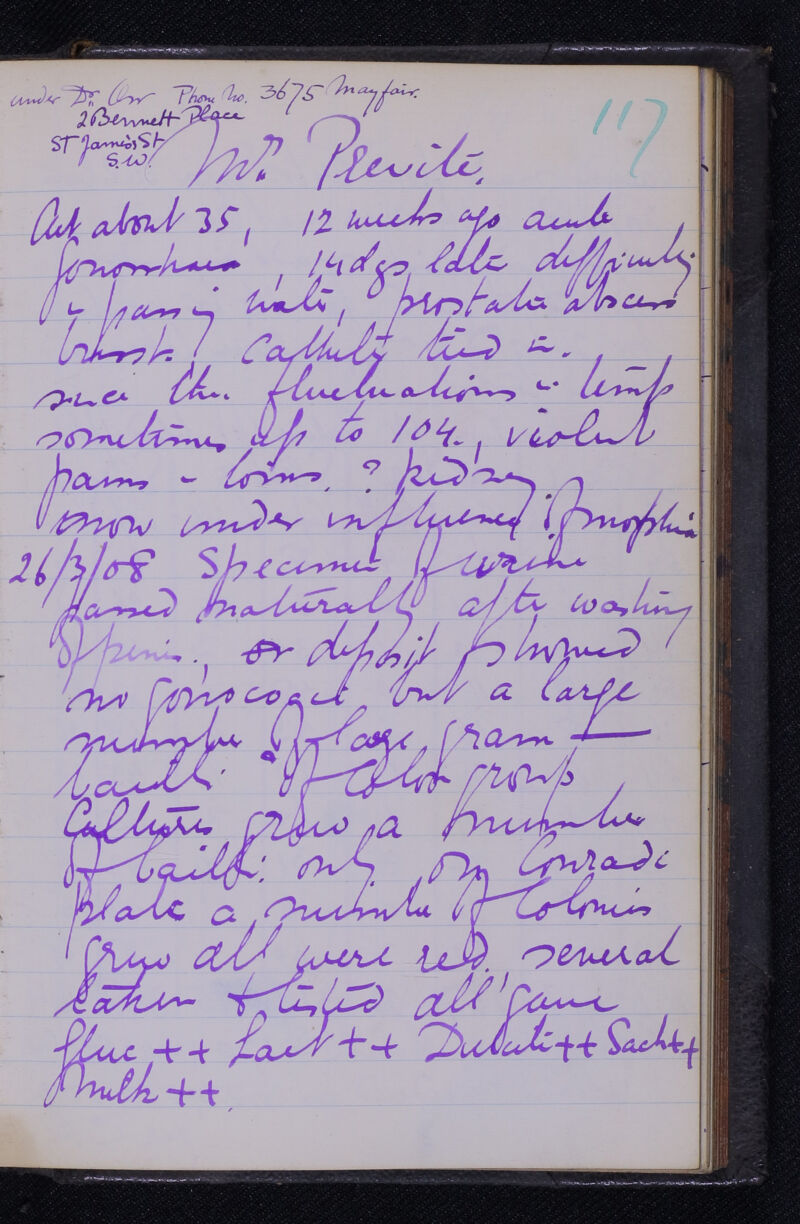 under Dr. Orr Phone No. 3675 Mayfair.
2 Bennett Place
St James's St
S.W.
117
Mr. Previté.
Aet about 35, 12 weeks ago acute
gonorrhaea, 14 dys late difficulty
in passing wate, prostate abscess
burst. Cathete tied in.
since then fluctuations in temp
sometimes up to 104., violent
pains in loins. ? kidney
now under influence of morphia
26/3/08 Specimen of urine
passed naturally after washing
of penis., deposit showed
no gonococci but a large
number of large gram —
bacilli of Colon group
Cultures grew a number
of bacilli only on Conradi
plate a number of Colonies
grew all were red, several
taken & tested all gave
Gluc ++ Lact ++ ++ Sach ++
Milk ++.